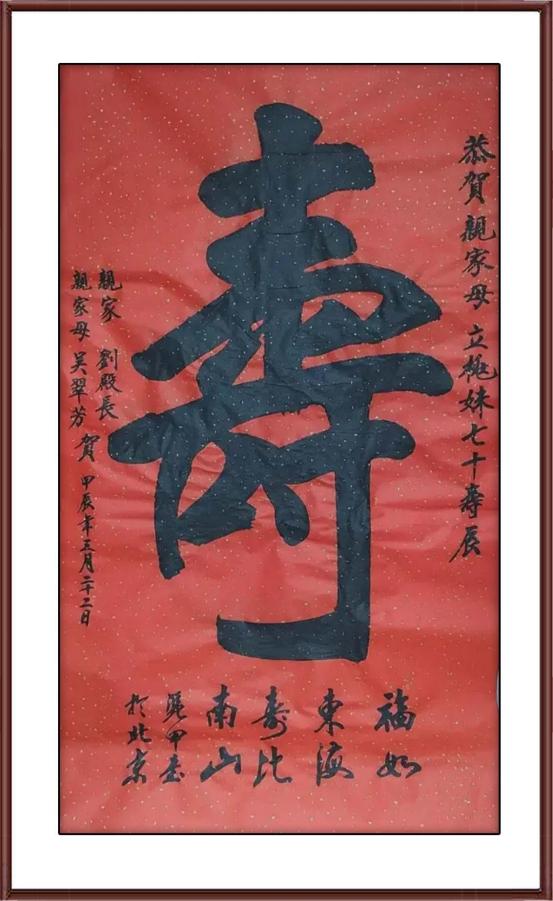 恭賀親家母立桃妹七十壽辰
壽
福如
東海
壽比
南山
於北京
親家 劉殿長
親家母 吴翠芳 賀 甲辰年三月二十二日